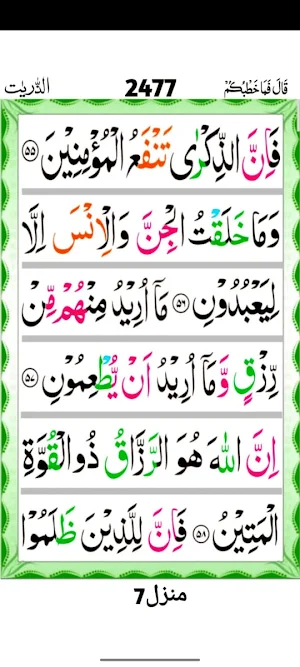 قَالَ فَمَا خَطْبُكُمْ 2477 الذّٰرِیٰت
فَاِنَّ الذِّكْرٰى تَنْفَعُ الْمُؤْمِنِیْنَ ۝۵۵
وَمَا خَلَقْتُ الْجِنَّ وَالْاِنْسَ اِلَّا
لِیَعْبُدُوْنِ ۝۵۶ مَاۤ اُرِیْدُ مِنْهُمْ مِّنْ
رِّزْقٍ وَّمَاۤ اُرِیْدُ اَنْ یُّطْعِمُوْنِ ۝۵۷
اِنَّ اللّٰهَ هُوَ الرَّزَّاقُ ذُو الْقُوَّةِ
الْمَتِیْنُ ۝۵۸ فَاِنَّ لِلَّذِیْنَ ظَلَمُوْا
منزل7